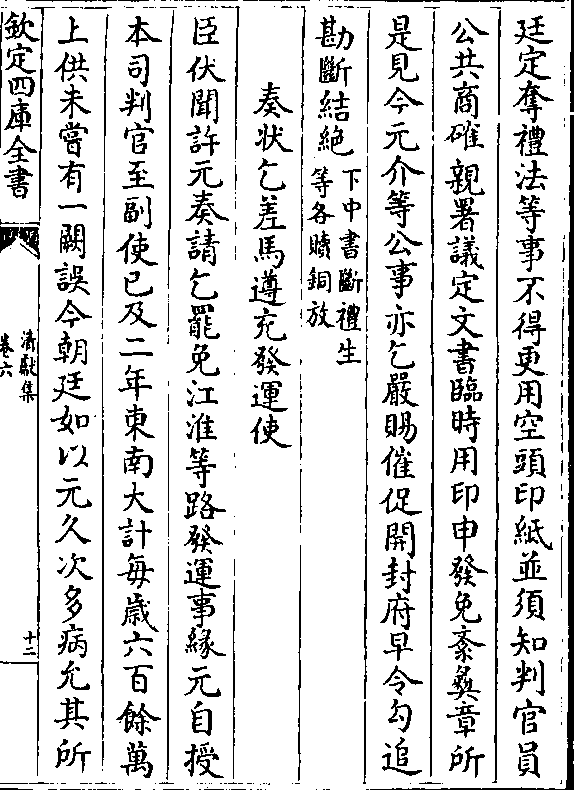 廷定奪禮法等事不得更用空頭印紙並須知判官員
公共商確親署議定文書臨時用印申發免紊彜章所
是見今元介等公事亦乞嚴賜催促開封府早令勾追
勘斷結絶下中書斷禮生
等各贖銅放
奏狀乞差馬遵充發運使
臣伏聞許元奏請乞罷免江淮等路發運事縁元自授
本司判官至副使已及二年東南大計每歲六百餘萬
上供未嘗有一闕誤今朝廷如以元久次多病允其所
欽定四庫全書
清獻集
卷六
十二